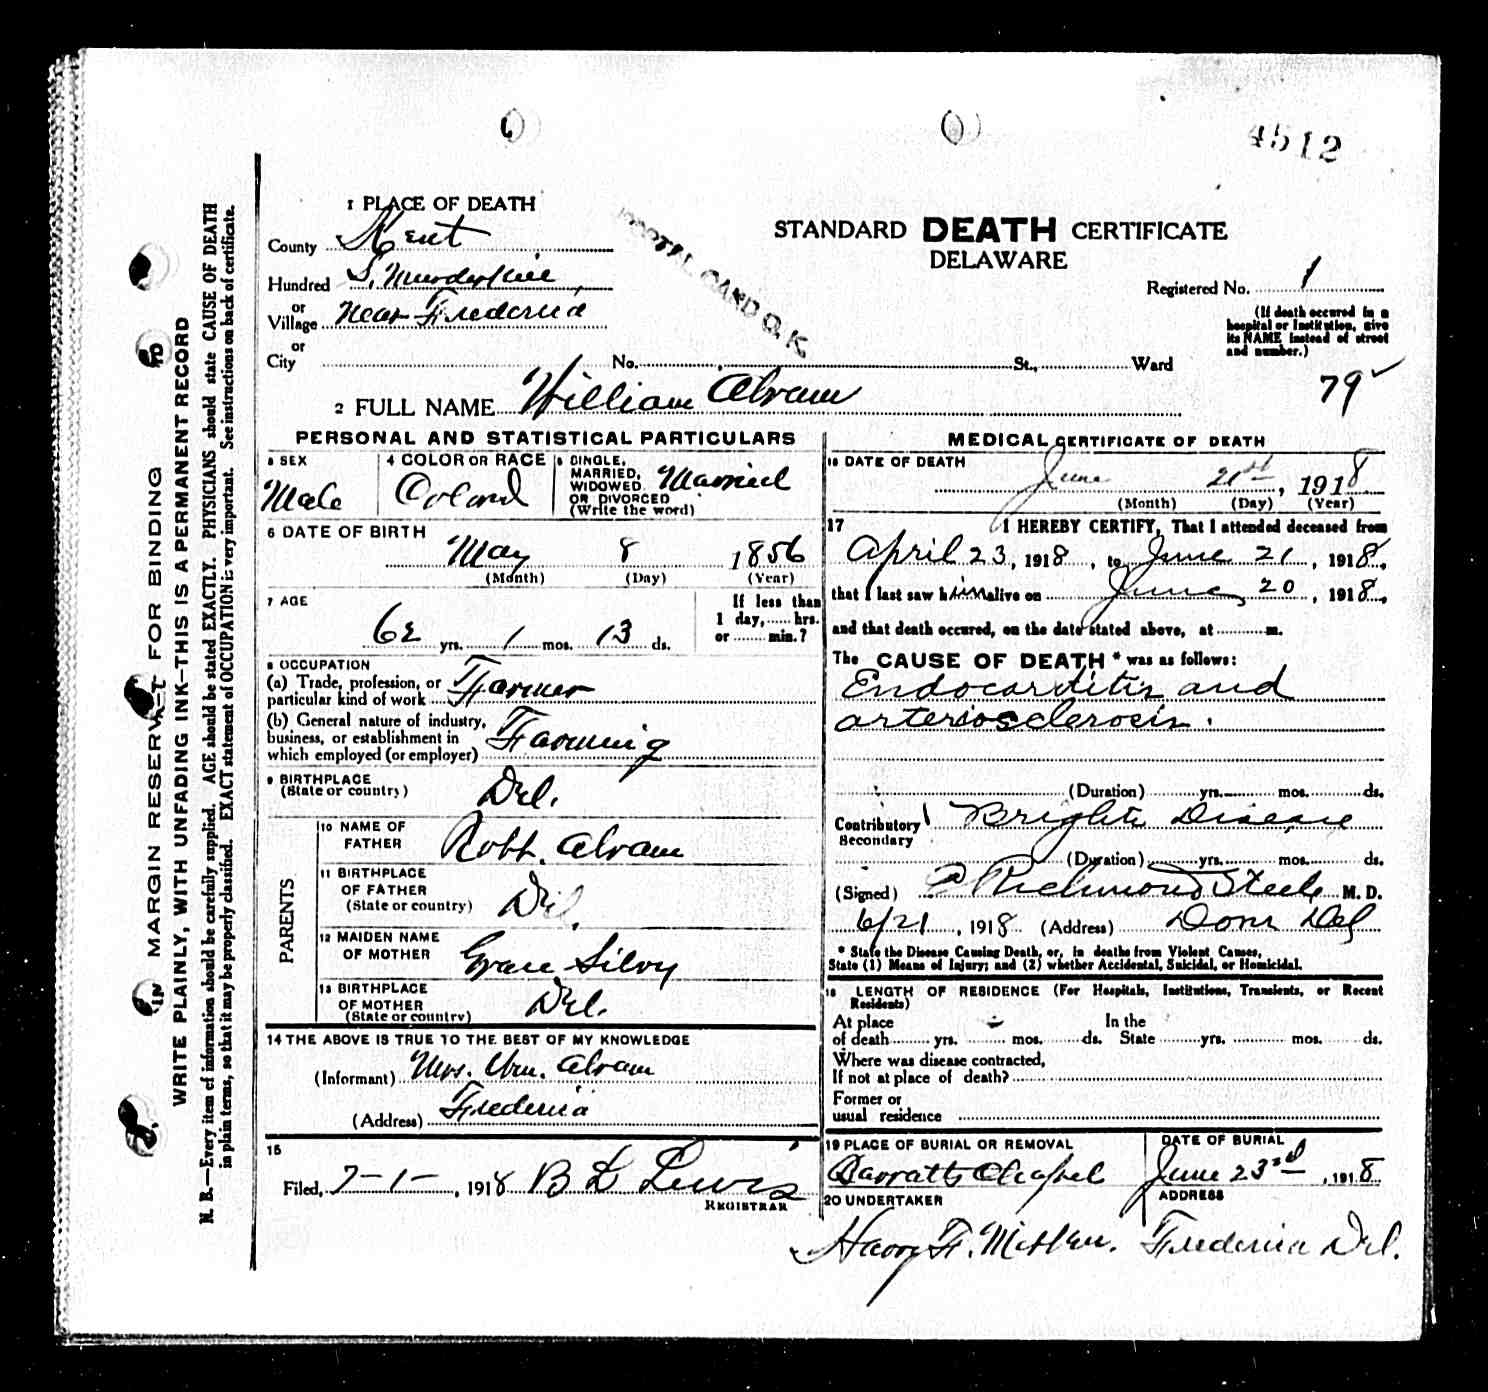 4512
1 PLACE OF DEATH
County Kent
Hundred S. Murderkill
or
Village near Frederica
or
City No. St., Ward
POSTAL CARD O.K.
STANDARD DEATH CERTIFICATE
DELAWARE
Registered No. 1
(If death occured in a
hospital or Institution, give
its NAME instead of street
and number.)
79
2 FULL NAME William Abram
PERSONAL AND STATISTICAL PARTICULARS
3 SEX
Male
4 COLOR OR RACE
Colored
5 SINGLE,
MARRIED,
WIDOWED
OR DIVORCED
(Write the word)
Married
6 DATE OF BIRTH
May 8 1856
(Month) (Day) (Year)
7 AGE
62 yrs. 1 mos. 13 ds.
If less than
1 day, hrs.
or min.?
8 OCCUPATION
(a) Trade, profession, or
particular kind of work Farmer
(b) General nature of industry,
business, or establishment in
which employed (or employer) Farming
9 BIRTHPLACE
(State or country)
Del.
PARENTS
10 NAME OF
FATHER
Robt. Abram
11 BIRTHPLACE
OF FATHER
(State or country)
Del.
12 MAIDEN NAME
OF MOTHER
Grace Silvy
13 BIRTHPLACE
OF MOTHER
(State or country)
Del.
14 THE ABOVE IS TRUE TO THE BEST OF MY KNOWLEDGE
(Informant) Mrs. Wm. Abram
(Address) Frederica
15
Filed, 7-1-, 1918 B L Lewis
REGISTRAR
MEDICAL CERTIFICATE OF DEATH
16 DATE OF DEATH
June 21st, 1918
(Month) (Day) (Year)
17 I HEREBY CERTIFY, That I attended deceased from
April 23, 1918, to June 21, 1918,
that I last saw him alive on June 20, 1918,
and that death occured, on the date stated above, at m.
The CAUSE OF DEATH * was as follows:
Endocarditis and
arteriosclerosis.
(Duration) yrs. mos. ds.
Contributory Brights Disease
Secondary
(Duration) yrs. mos. ds.
(Signed) Richmond Steele M. D.
6/21, 1918 (Address) Dover Del
* State the Disease Causing Death, or, in deaths from Violent Causes,
State (1) Means of Injury; and (2) whether Accidental, Suicidal, or Homicidal.
18 LENGTH OF RESIDENCE (For Hospitals, Institutions, Transients, or Recent
Residents)
At place In the
of death yrs. mos. ds. State yrs. mos. ds.
Where was disease contracted,
If not at place of death?
Former or
usual residence
19 PLACE OF BURIAL OR REMOVAL
Barratts Chapel
DATE OF BURIAL
June 23rd, 1918
20 UNDERTAKER
ADDRESS
Harry F. Frederica Del.
MARGIN RESERVED FOR BINDING
WRITE PLAINLY, WITH UNFADING INK—THIS IS A PERMANENT RECORD
N. B.—Every item of information should be carefully supplied. AGE should be stated EXACTLY. PHYSICIANS should state CAUSE OF DEATH
in plain terms, so that it may be properly classified. EXACT statement of OCCUPATION is very important. See instructions on back of certificate.